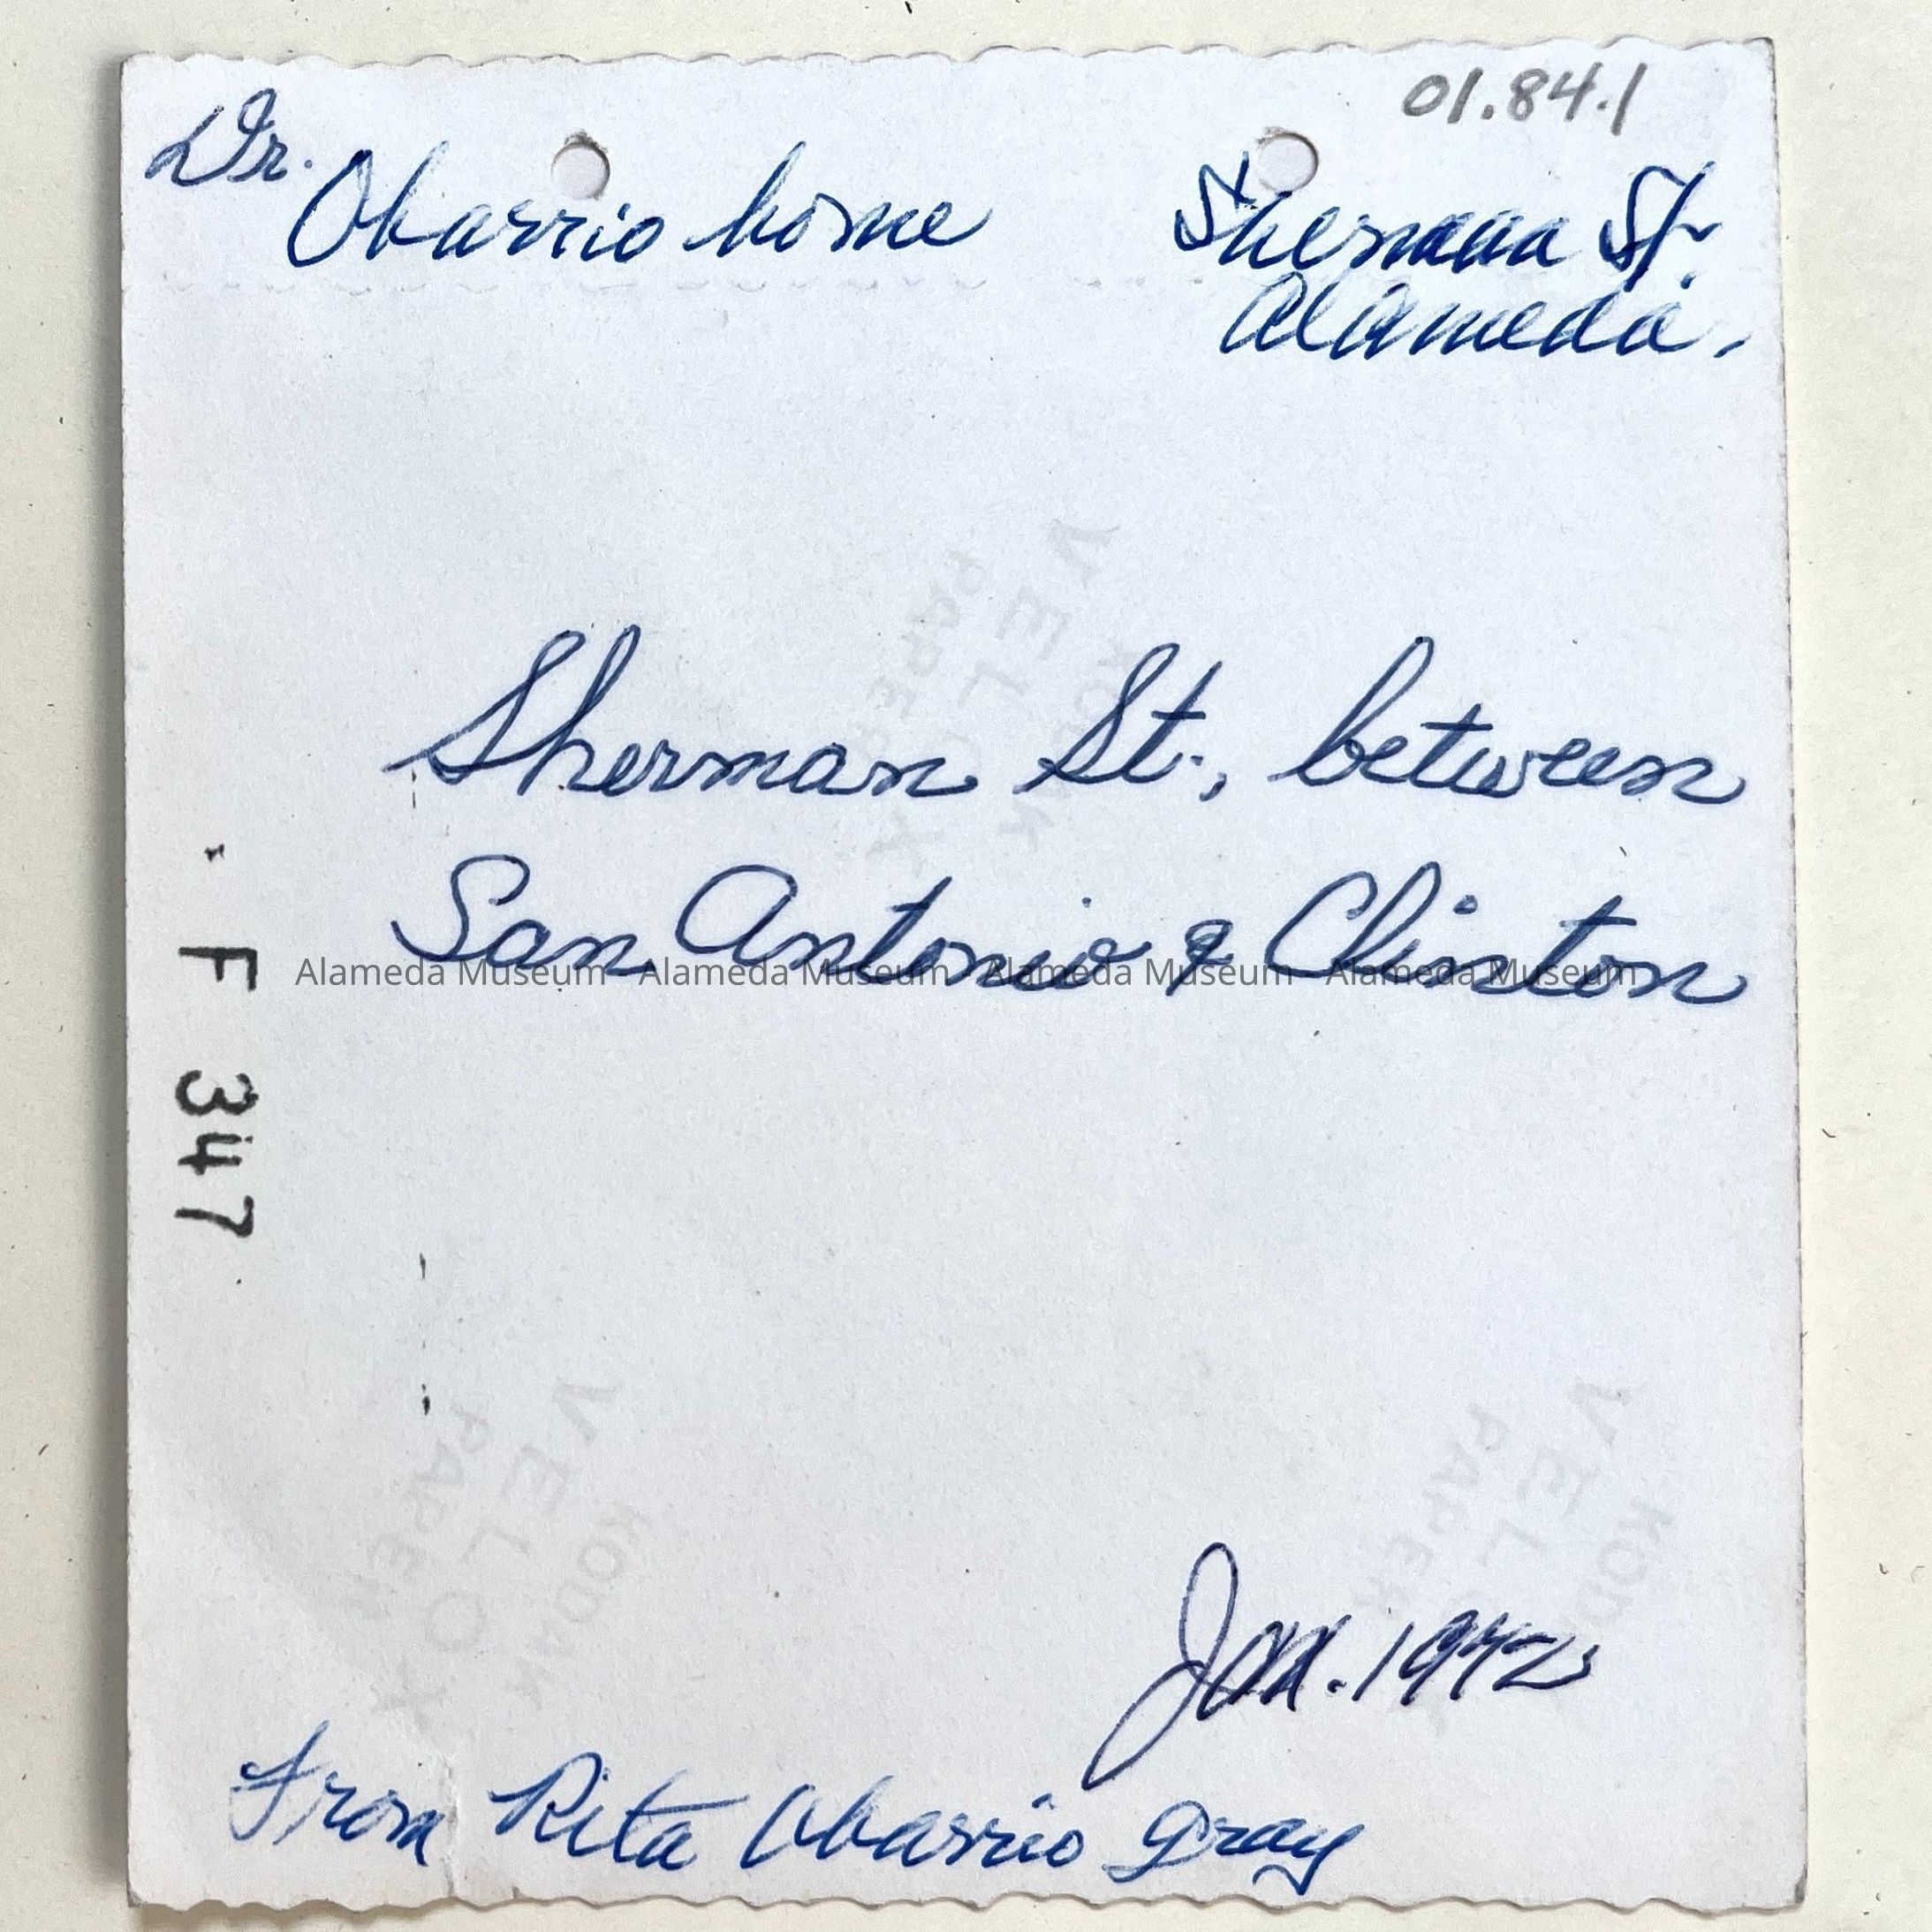 01.84.1
Dr. Obarrio home
Sherman St.
Alameda.
Sherman St., between
San Antonio & Clinton
Alameda Museum Alameda Museum Alameda Museum Alameda Museum
F 347
VELOX
KODAK
PAPER
VELOX
KODAK
PAPER
Jan. 1942
From Rita Obarrio Gray